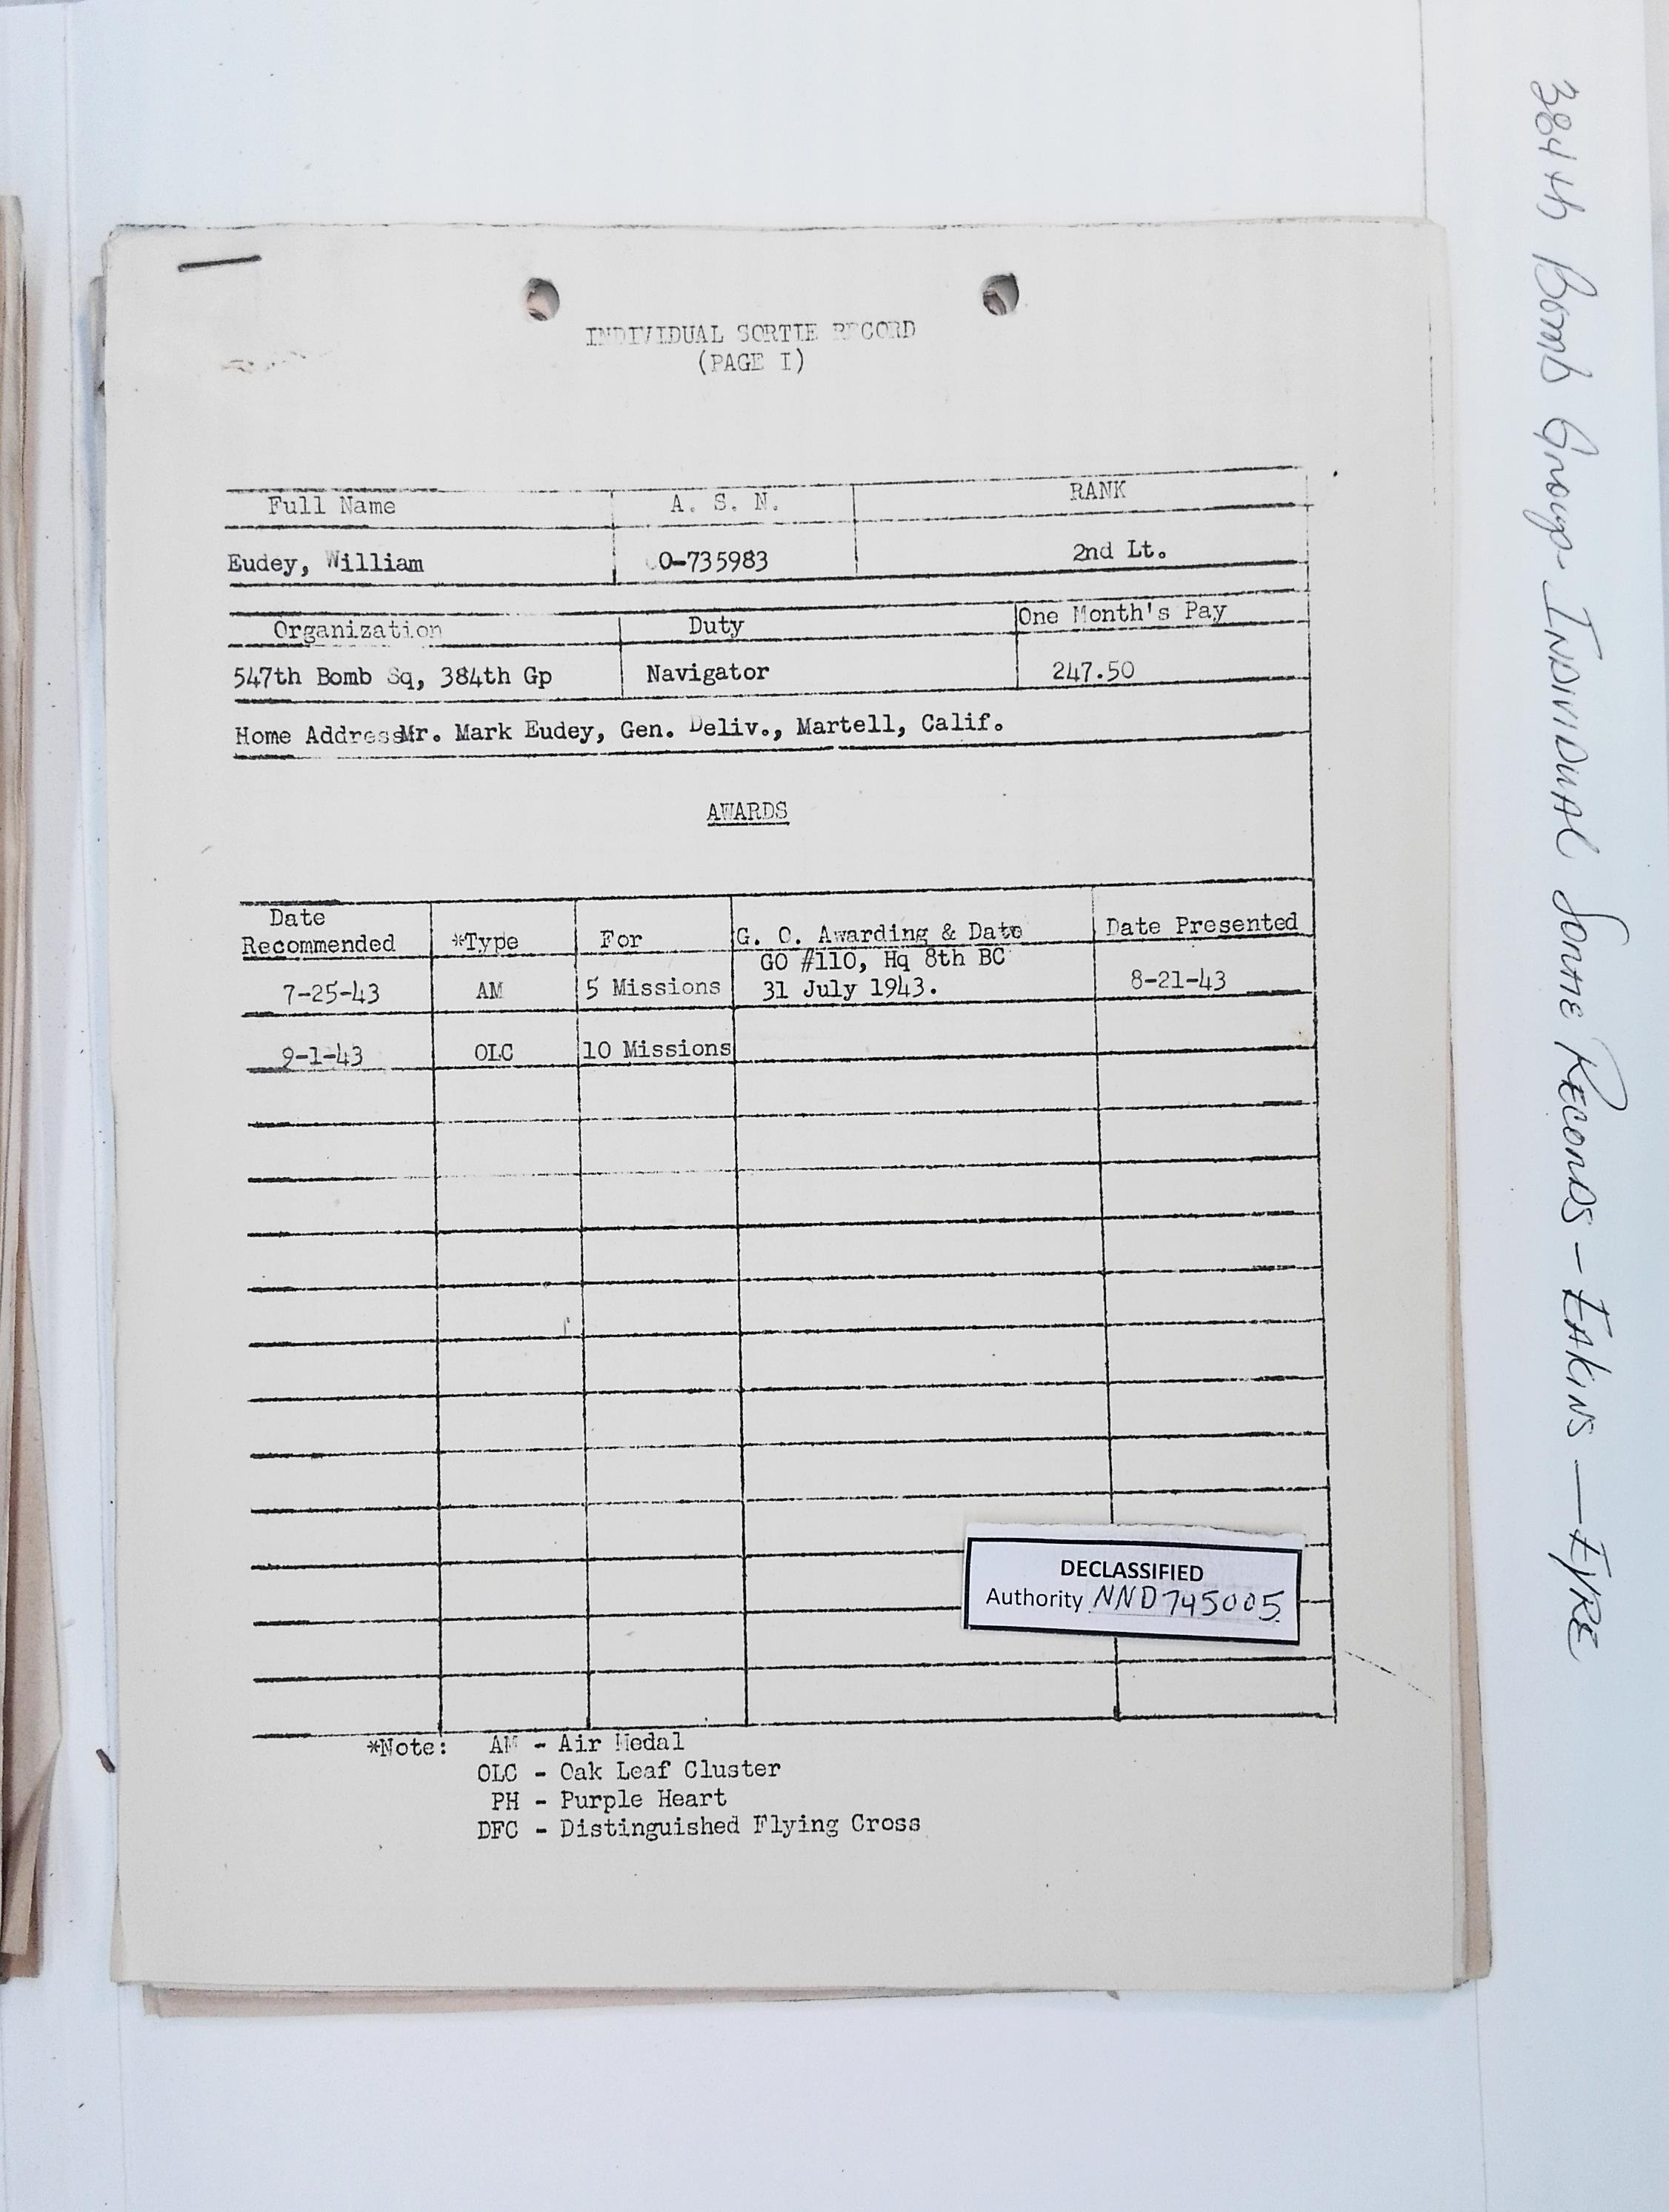 INDIVIDUAL SORTIE RECORD
(PAGE I)
Full Name A. S. N. RANK
Eudey, William O-735983 2nd Lt.
Organization Duty One Month's Pay
547th Bomb Sq, 384th Gp Navigator 247.50
Home Address Mr. Mark Eudey, Gen. Deliv., Martell, Calif.
AWARDS
Date Recommended *Type For G. O. Awarding & Date Date Presented
7-25-43 AM 5 Missions GO #110, Hq 8th BC 31 July 1943. 8-21-43
9-1-43 OLC 10 Missions
DECLASSIFIED
Authority NND745005
*Note: AM - Air Medal
OLC - Oak Leaf Cluster
PH - Purple Heart
DFC - Distinguished Flying Cross
384th Bomb Group - Individual Sortie Records - Eakins - Eyre